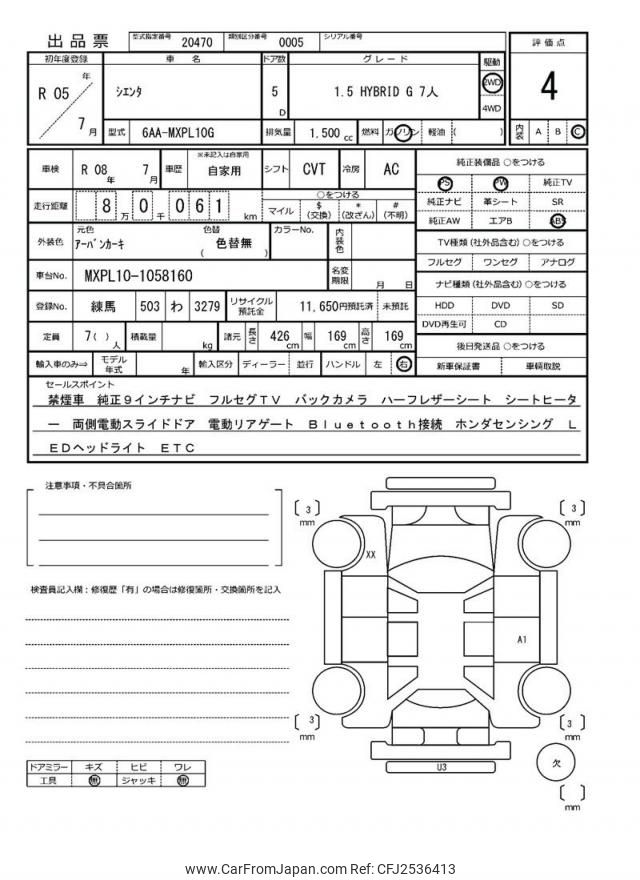 出品票 型式指定番号 20470 類別区分番号 0005 シリアル番号
評価点
4
内装 A B C
初年度登録 車名 ドア数 グレード 駆動
R 05 年 7 月
シエンタ
5 D
1.5 HYBRID G 7人
2WD
4WD
型式 6AA-MXPL10G 排気量 1,500 cc 燃料 ガソリン 軽油 ( )
車検 R 08 年 7 月 車歴 ※未記入は自家用 自家用 シフト CVT 冷房 AC
走行距離 8 万 0 千 0 6 1 km
○をつける
マイル $ (交換) * (改ざん) # (不明)
外装色 元色 アーバンカーキ 色替 ( 色替無 ) カラーNo. 内装色
車台No. MXPL10-1058160 名変期限 月 日
登録No. 練馬 503 わ 3279 リサイクル預託金 11,650円預託済 未預託
定員 7( ) 人 積載量 kg 諸元 長さ 426 cm 幅 169 cm 高さ 169 cm
輸入車のみ⇒ モデル年式 年 輸入区分 ディーラー 並行 ハンドル 左 右
純正装備品 ○をつける
PS PW 純正TV
純正ナビ 革シート SR
純正AW エアB ABS
TV種類 (社外品含む) ○をつける
フルセグ ワンセグ アナログ
ナビ種類 (社外品含む) ○をつける
HDD DVD SD
DVD再生可 CD
後日発送品 ○をつける
新車保証書 車輌取説
セールスポイント
禁煙車 純正9インチナビ フルセグTV バックカメラ ハーフレザーシート シートヒータ
ー 両側電動スライドドア 電動リアゲート Bluetooth接続 ホンダセンシング L
EDヘッドライト ETC
注意事項・不具合箇所
検査員記入欄：修復歴「有」の場合は修復箇所・交換箇所を記入
ドアミラー キズ ヒビ ワレ
工具 無 ジャッキ 無
[ 3 ] mm
[ 3 ] mm
XX
A1
[ 3 ] mm
[ 3 ] mm
U3
欠
[ ] mm
www.CarFromJapan.com Ref: CFJ2536413